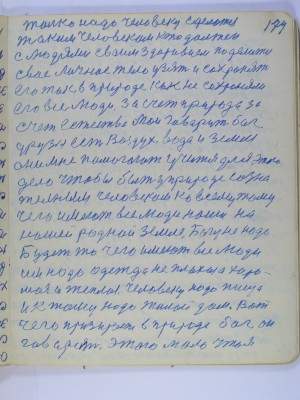 174
только надо человеку сделать
таким человеком кто должен
с людями своим здоровием поделить
свое личное тело узят и сохранят
его так в природе как не сохраняли
его все люди За счет природе за
счет естество Мои говарит баг
друзя ест Воздух вода и земля
они мне помогают учится для этого
дело чтобы быт у природе созна
телным человеком ко всему тому
чего имеют все люди наши на
нашей родной Земле Богу не надо
Будет то чего имеют все люди
им надо одежда не плохая харо-
мая и теплая человеку надо пища
и к тому надо жилой дом. Вот
чего призирает в природе баг он
говарит. Этого мало